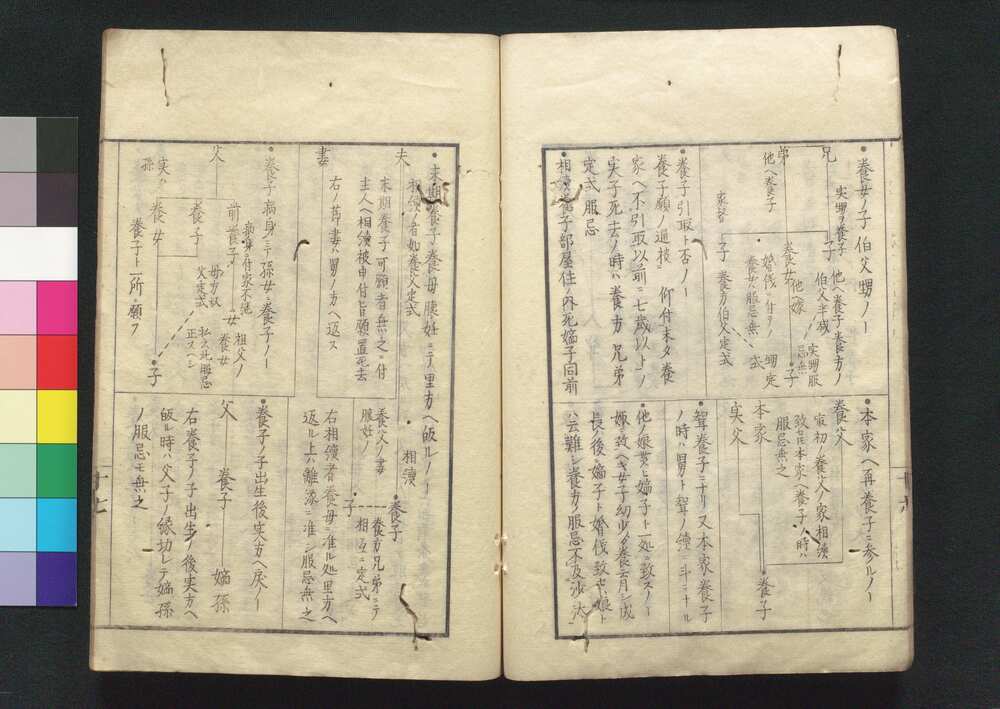 養女ノ子伯父甥ノー
実甥ヲ養子
兄
弟
他ヘ養子
家督
子
子
他ヘ養子養方ノ
伯父半減
養女
他嫁
婚礼ニ付養方ノ
養女ハ服忌無
養方伯父定式
実甥服
忌無
甥定
式
子
養子引取ト否ノー
養子願ノ通被仰付未タ養
家ヘ不引取以前ニ七歳以上ノ
実子死去ノ時ハ養方兄弟
定式ノ服忌
相続ノ養子部屋住ノ内死嫡子同前
本家ヘ再養子ニ参ルノー
養父
最初ノ養父ノ家相続
致セ本家ヘ養子ノ時ハ
服忌無之
本家
実父
養子
聟養子ニナリ又本家養子
ノ時ハ舅ト聟ノ続ニ斗ニナル
他ノ娘貰ヒ嫡子ト一処ニ致スノー
嫁致ヘキ女子幼少ヨリ養育シ成
長後ニ嫡子ト婚礼致セハ娘ト
ハ云難シ養方ノ服忌不及沙汰
末期養子養母懐妊ニテ里方ヘ皈ルノー
夫
相続ノ者如養父定式
末期養子可願者無之ニ付
主人ヘ相続被申付旨願置死去
妻
右ノ節妻ハ舅ノ方ヘ返ス
相続
養子
養父ノ妻
懐妊ノ
子
養方兄弟ニテ
相互ニ定式
右相続者養母ニ准ル処里方ヘ
返ル上ハ離縁ニ准シ服忌無之
養子病身ニテ孫女ニ養子ノー
父
前養子
病身ニ付家不継
女
養子
母方叔
父定式
祖父ノ
養女
私云此服忌
正スヘシ
実ハ
孫
養女
養子ト一所ニ願フ
子
養子ノ子出生後実方ヘ戻ノー
父
養子
嫡孫
右養子ノ子出生ノ後実方ヘ
皈ル時ハ父子ノ縁切レテ嫡孫
ノ服忌モ無之
十七